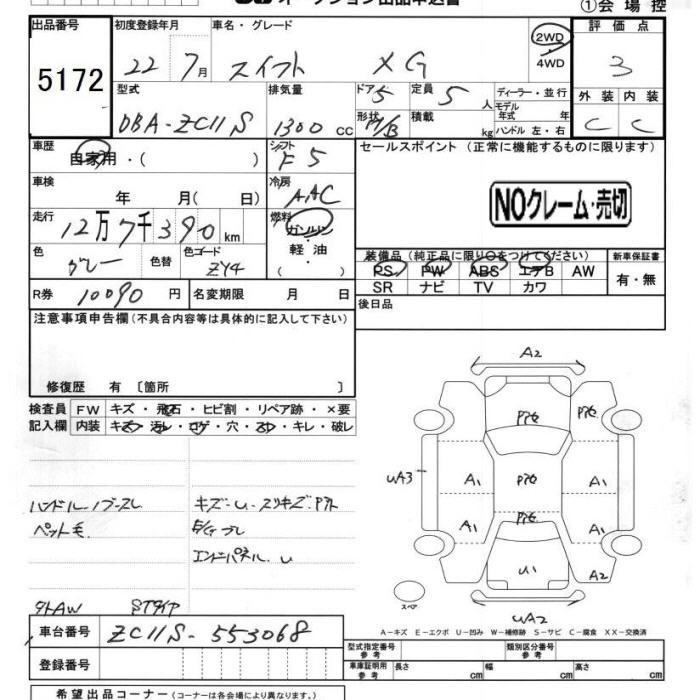 オークション出品申込書
①会場控
出品番号 初度登録年月 車名・グレード 評価点
5172
22年 7月 スイフト XG 2WD 3
4WD
型式 排気量 ドア 定員 ディーラー・並行 外装 内装
DBA-ZC11S 1300cc 5 5人 モデル年式 年 C C
形状 H/B 積載 kg ハンドル 左・右
車歴 シフト セールスポイント (正常に機能するものに限ります)
自家用・( ) F5
車検 冷房
年 月( 日) AAC
NOクレーム・売切
走行 燃料
12万7千390km ガソリン
軽油
( ・ )
色 色替 色コード
グレー ZY4
装備品 (純正品に限り〇をつけてください) 新車保証書
PS PW ABS エアB AW 有・無
SR ナビ TV カワ
R券 10090円 名変期限 月 日 後日品
注意事項申告欄(不具合内容等は具体的に記入して下さい)
修復歴 有 〔箇所 〕
検査員 FW キズ・飛石・ヒビ割・リペア跡・×要
記入欄 内装 キズ・汚レ・コゲ・穴・スレ・キレ・破レ
A2
P76 P76
UA3 A1 P76 A1
A1 P76 A1
U1 A2
UA2
スペア
ハンドル・ノブスレ キズ・U・スリキズ・Pアト
ペット毛
エンドパネル U
タトAW STタイヤ
A-キズ E-エクボ U-凹み W-補修跡 S-サビ C-腐食 XX-交換済
車台番号 ZC11S-553068
型式指定番号 参考 類別区分番号 参考
登録番号 車庫証明用 参考 長さ cm 幅 cm 高さ cm
希望出品コーナー(コーナーは各会場により異なります。)